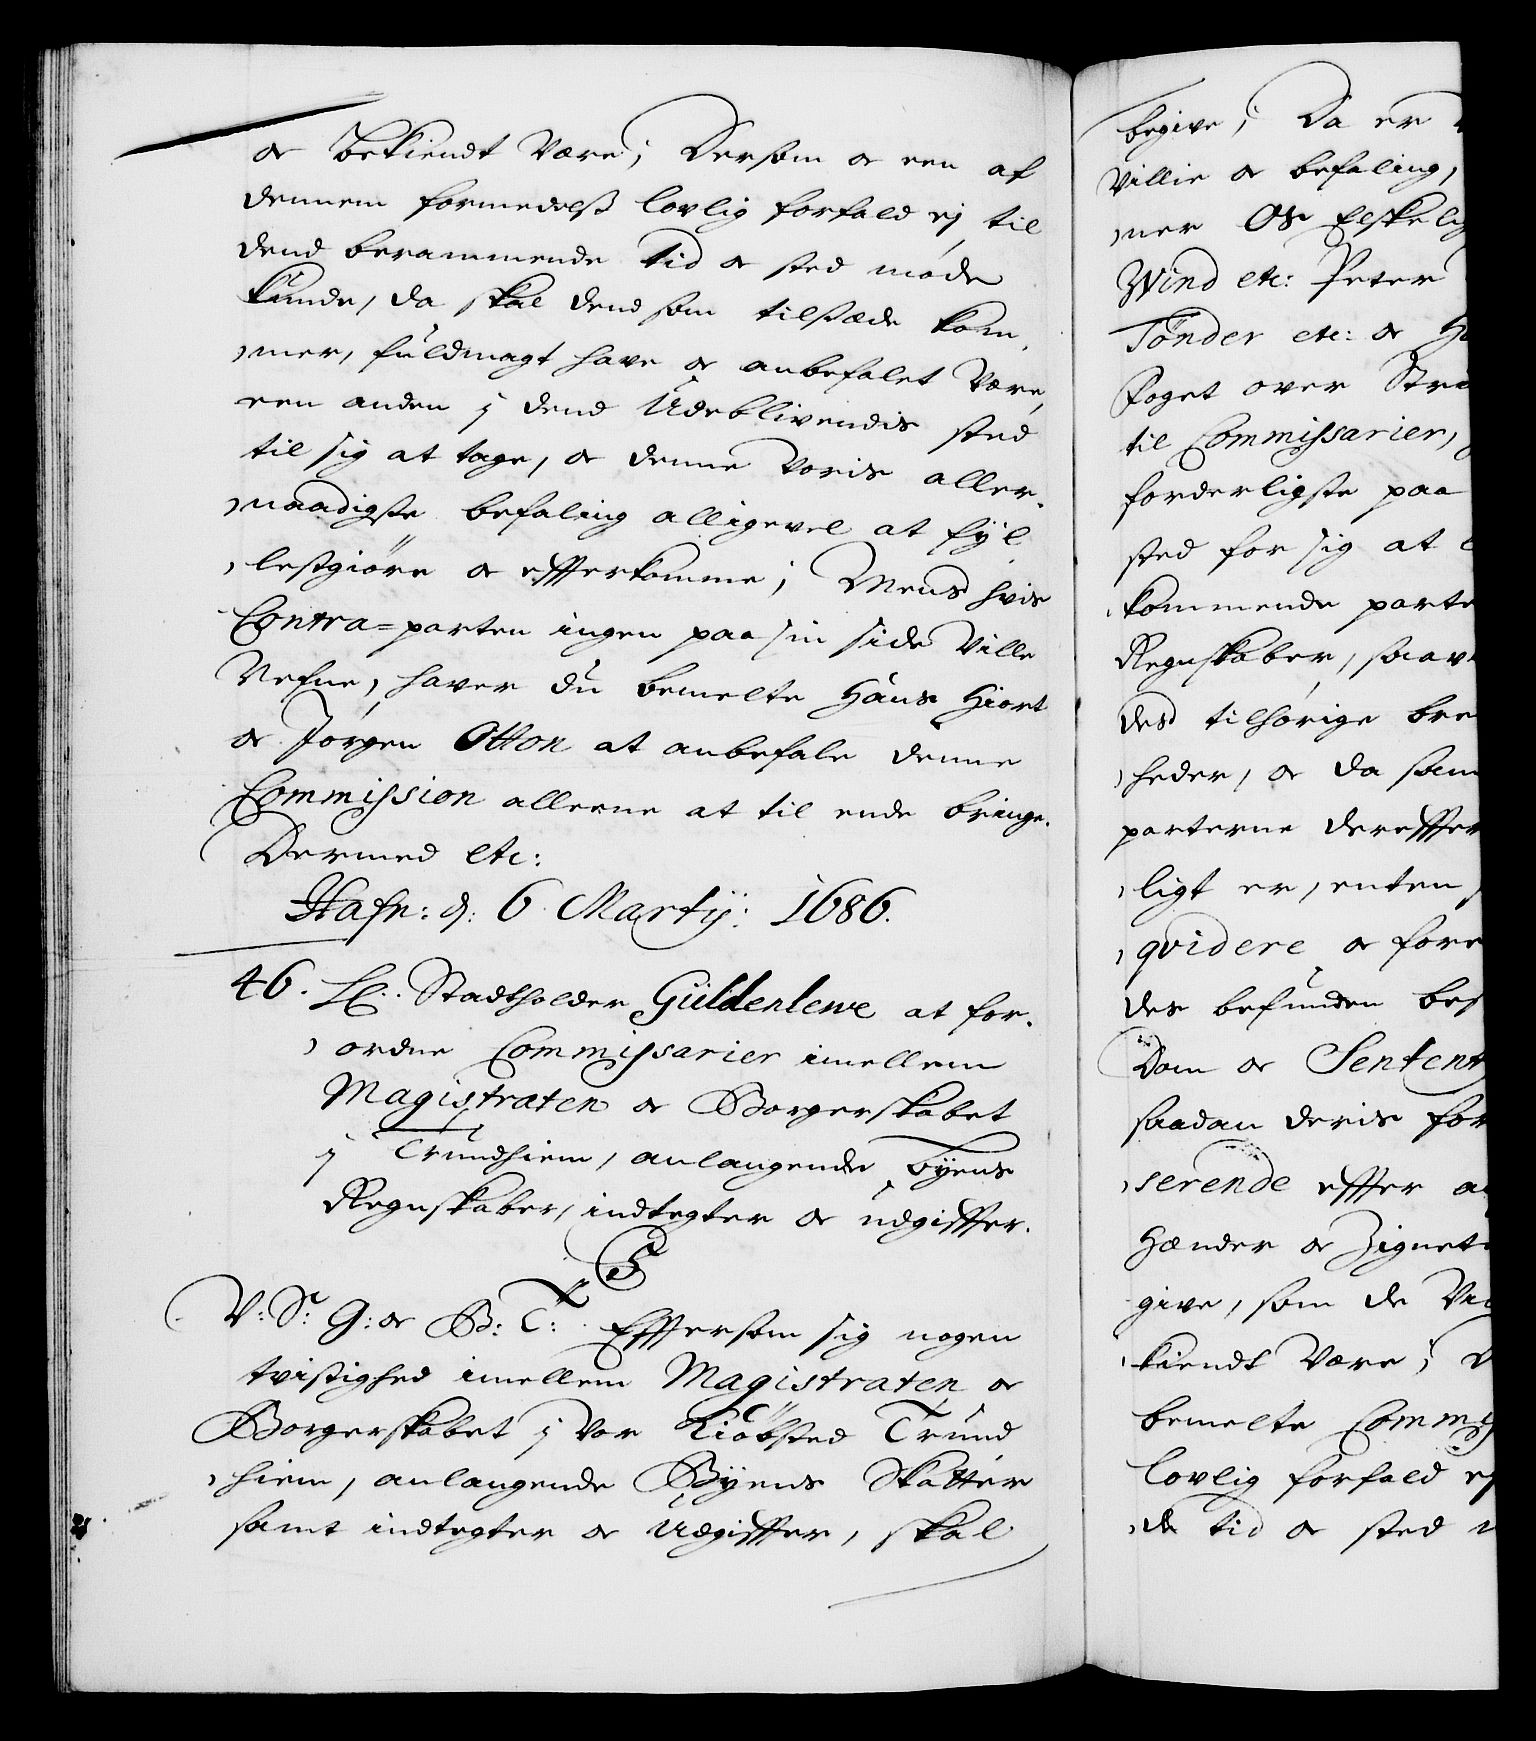 og bekiendt være; Dersom og een af
dennem formedelst lovlig forfald ej til
dend berammende tid og sted møde
kunde, da skal dend som tilstæde kom,
,mer, fuldmagt have og anbefalet være,
een anden j dend Udeblivendis sted
til sig at tage, og denne voris aller,
,naadigste befaling alligevel at fÿl
,lestgiøre og effterkomme; Mens hvis
Contra=parten ingen paa sin side ville
Nefne, haver du bemelte Hans Hiort
og Jørgen Otton at anbefale denne
Commission alleene at til ende bringe.
Dermed etc:
Hafn: d: 6 Martÿ: 1686.
46. Stadtholder Güldenlewe at for,
,ordne Commissarier imellem
Magistraten og Borgerskabet
j Trundhiem, anlangende bÿens
Regnskaber, indtegter og udgiffter.
C5
V: S: G: og B: T: Efftersom sig nogen
tvistighed imellem Magistraten og
Borgerskabet j vor Kiöbsted Trund
,hiem, anlangende Bÿens Skatter
samt indtegter og Udgiffter, skal
begive; Da er
villie og befaling,
,ner Os Elskelig
Wind etc: Peter
Tønder etc: og
Foget over Stri
til Commissarier,
forderligste paa
sted for sig at
kommende parte
Regnskaber, saav
des tilhørige bre
,heder, og da sam
parterne dereffter
,ligt er, enten
,qvidere og fore
des befunden bes
Dom og Sentent
saadan deris for
,serende effter
Hænder og Zignet
give, som de
kiendt være;
bemelte Commis
lovlig forfald ej
,de tid og sted